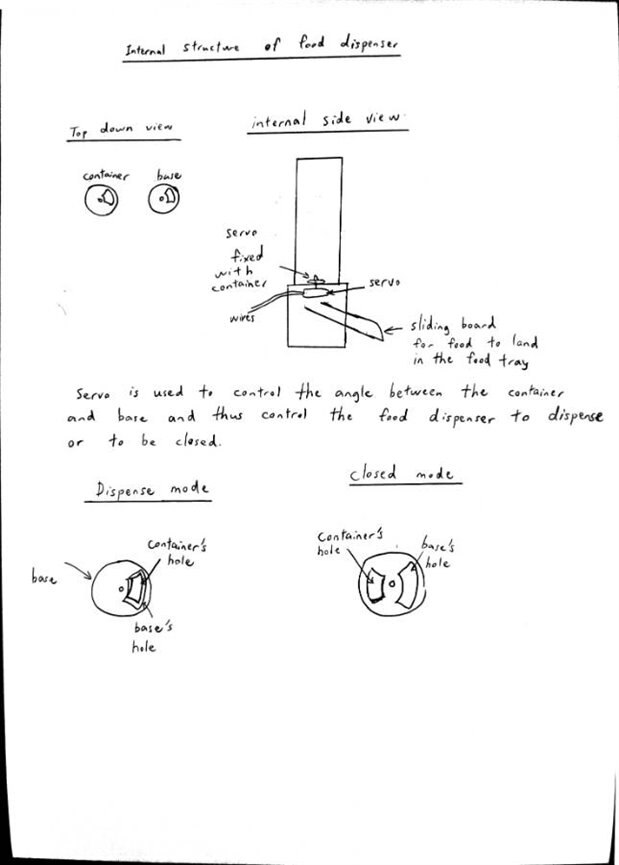 Internal structure of food dispenser
Top down view
internal side view
container
base
servo
fixed
with
container
servo
wires
sliding board
for food to land
in the food tray
Servo is used to control the angle between the container
and base and thus control the food dispenser to dispense
or to be closed.
Dispense mode
closed mode
base
container's
hole
base's
hole
container's
hole
base's
hole